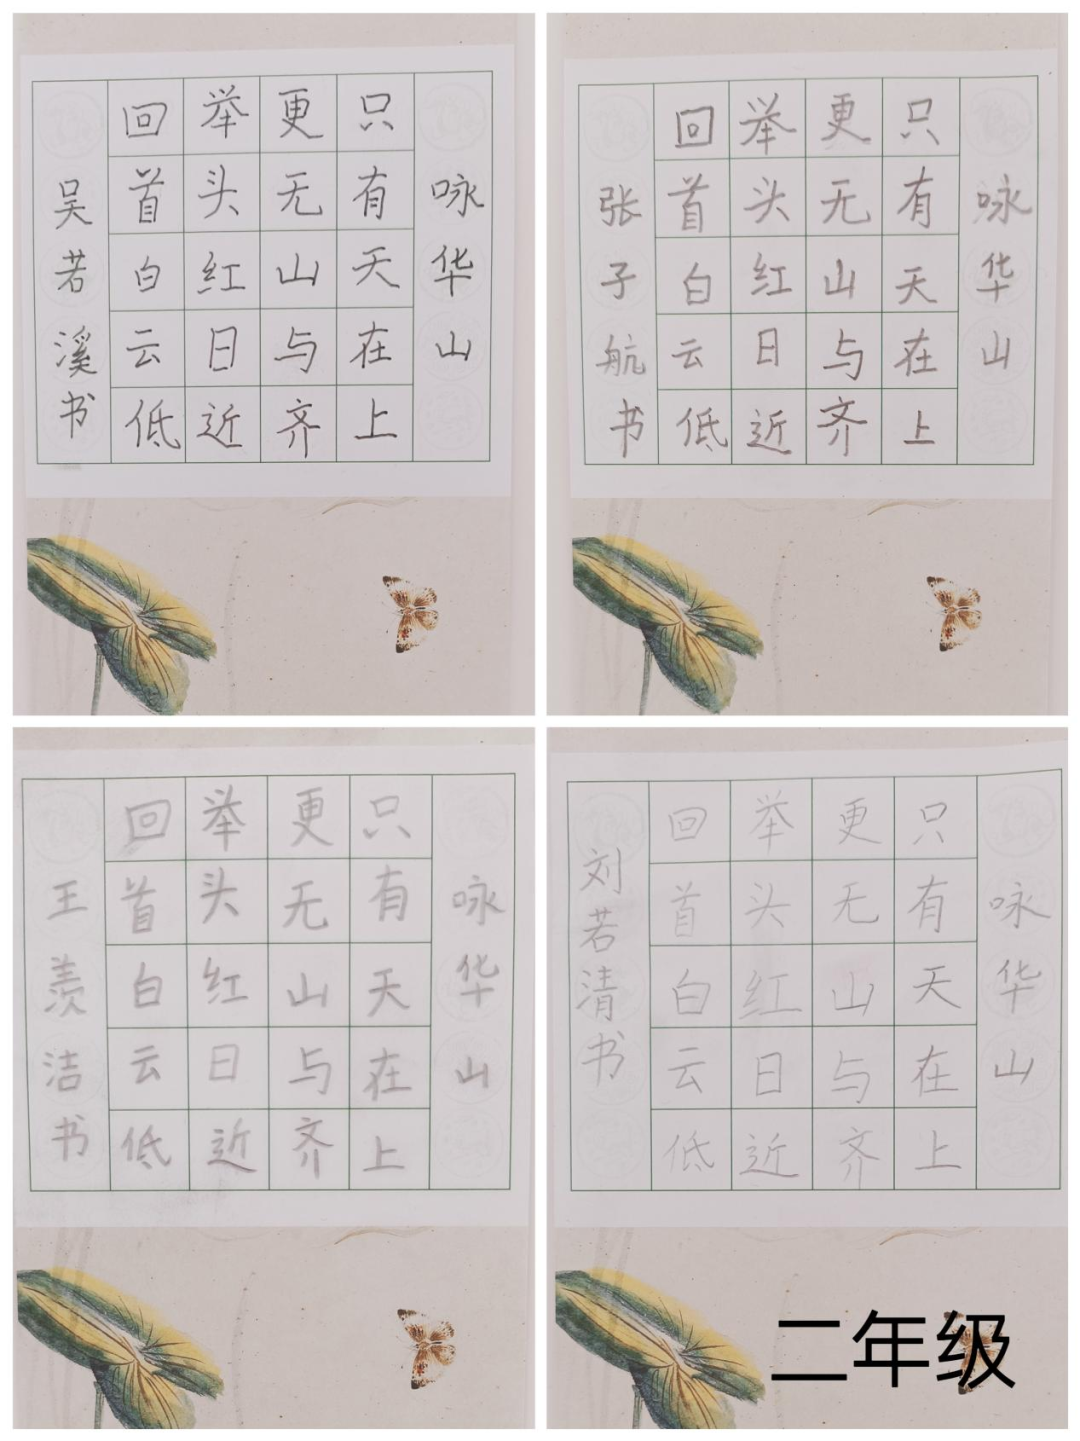 咏华山
只有天在上
更无山与齐
举头红日近
回首白云低
吴若溪书
咏华山
只有天在上
更无山与齐
举头红日近
回首白云低
张子航书
咏华山
只有天在上
更无山与齐
举头红日近
回首白云低
王羡洁书
咏华山
只有天在上
更无山与齐
举头红日近
回首白云低
刘若清书
二年级